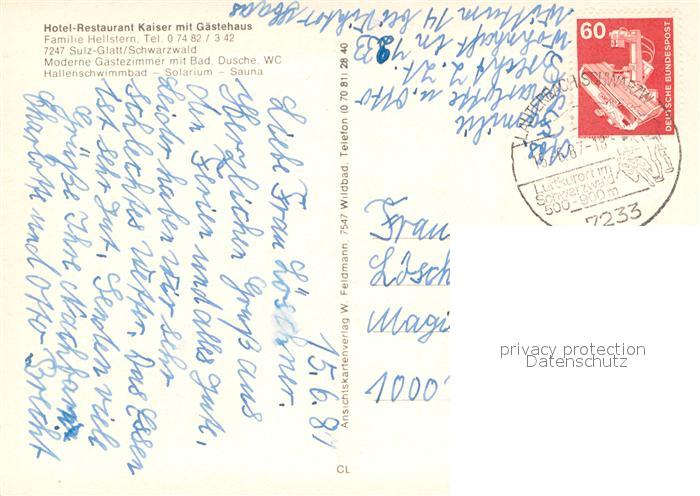 Hotel-Restaurant Kaiser mit Gästehaus
Familie Hellstern, Tel. 0 74 82 / 3 42
7247 Sulz-Glatt/Schwarzwald
Moderne Gästezimmer mit Bad, Dusche, WC
Hallenschwimmbad – Solarium – Sauna
15.6.87
Liebe Frau Löschner.
Herzlichen Gruß aus
den Ferien und alles Gute,
Leider haben wir sehr
schlechtes Wetter. Das Essen
ist sehr gut. Senden viele
Grüße Ihre Nachbarn
Charlotte und Otto Brecht
Ansichtskartenverlag W. Feldmann, 7547 Wildbad, Telefon (0 70 81) 28 40
CL
Abs
Familie
Charlotte u. Otto
Brecht z. Zt.
Wohnhaft in 7233
14 bei Viktor Haas
60
DEUTSCHE BUNDESPOST
LAUTERBACH, SCHWARZW
Luftkurort im
Schwarzwald
500-900m
7233
Frau
Lösch
Magi
1000
privacy protection
Datenschutz